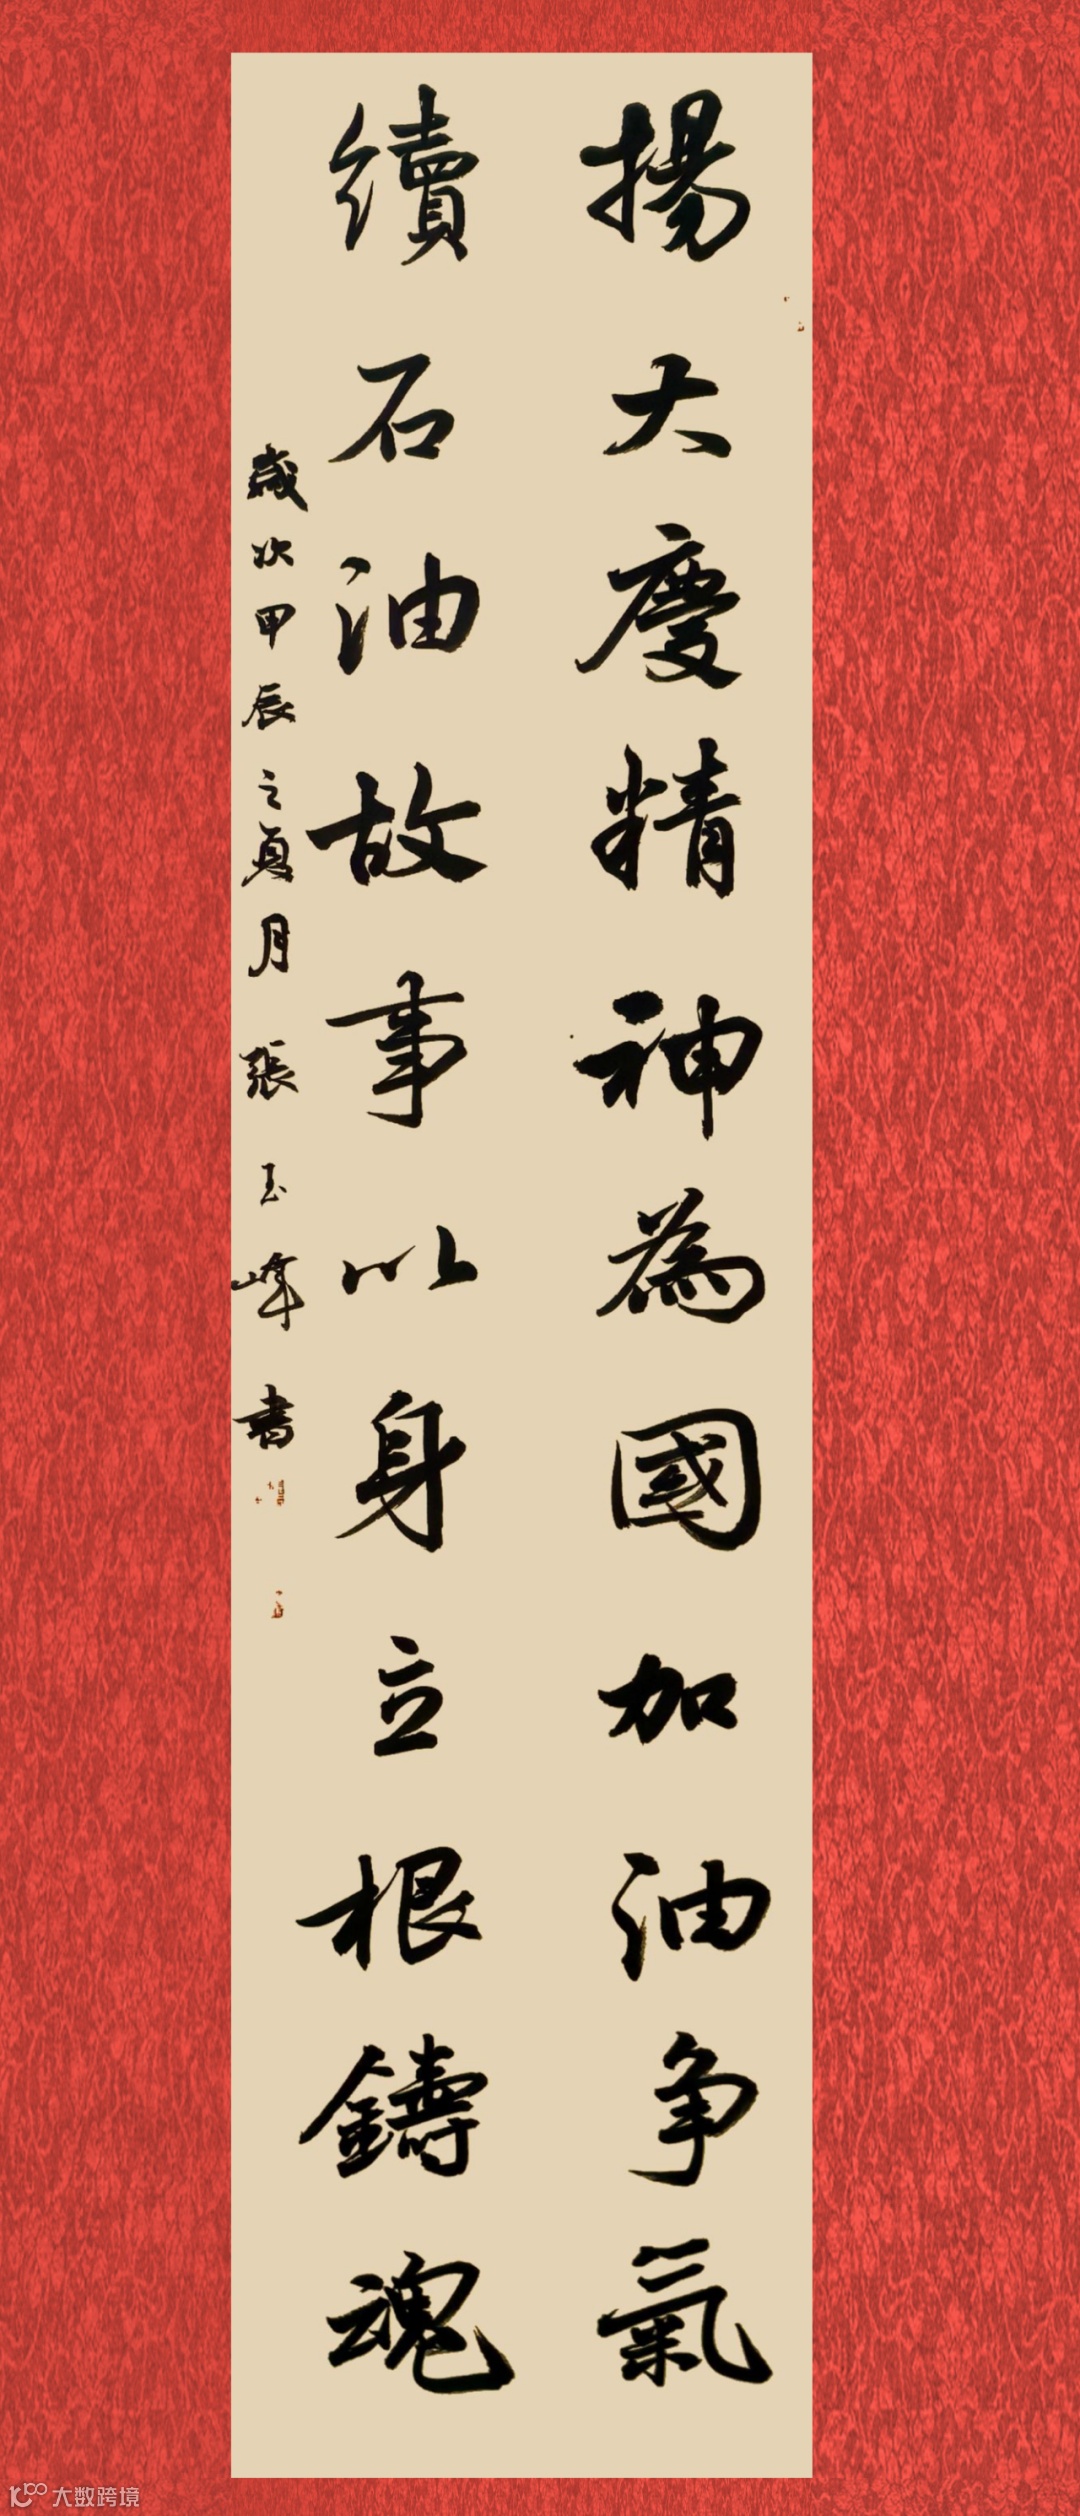 揚大慶精神為國加油争氣
續石油故事以身立根鑄魂
歲次甲辰之夏月 張玉峰書
大数跨境